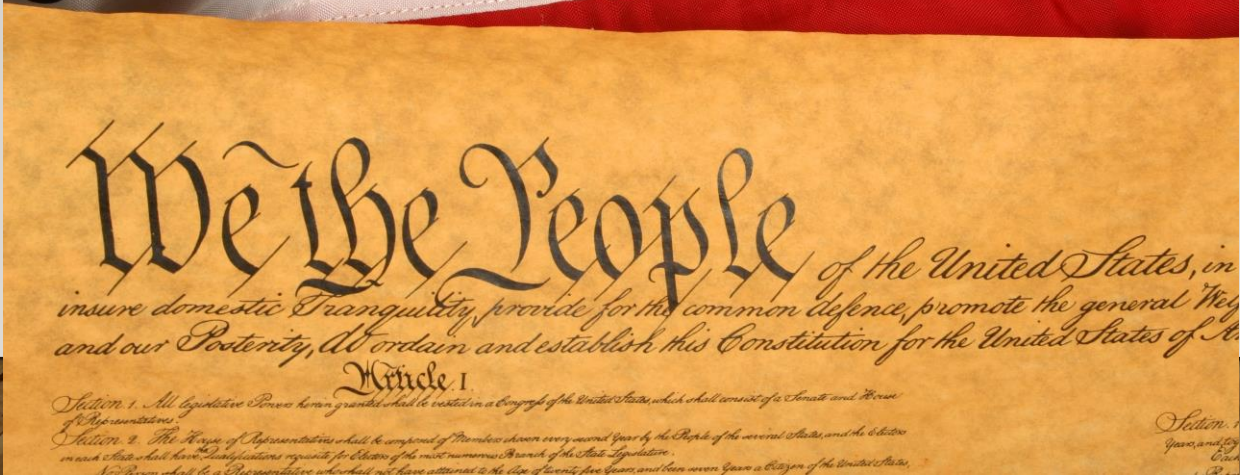 We the People of the United States, in
insure domestic Tranquility, provide for the common defence, promote the general Welf
and our Posterity, do ordain and establish this Constitution for the United States of A
Article. I.
Section. 1. All legislative Powers herein granted shall be vested in a Congress of the United States, which shall consist of a Senate and House
of Representatives.
Section. 2. The House of Representatives shall be composed of Members chosen every second Year by the People of the several States, and the Electors
in each State shall have the Qualifications requisite for Electors of the most numerous Branch of the State Legislature.
No Person shall be a Representative who shall not have attained to the Age of twenty five Years, and been seven Years a Citizen of the United States,
Section.
Years, and
Each